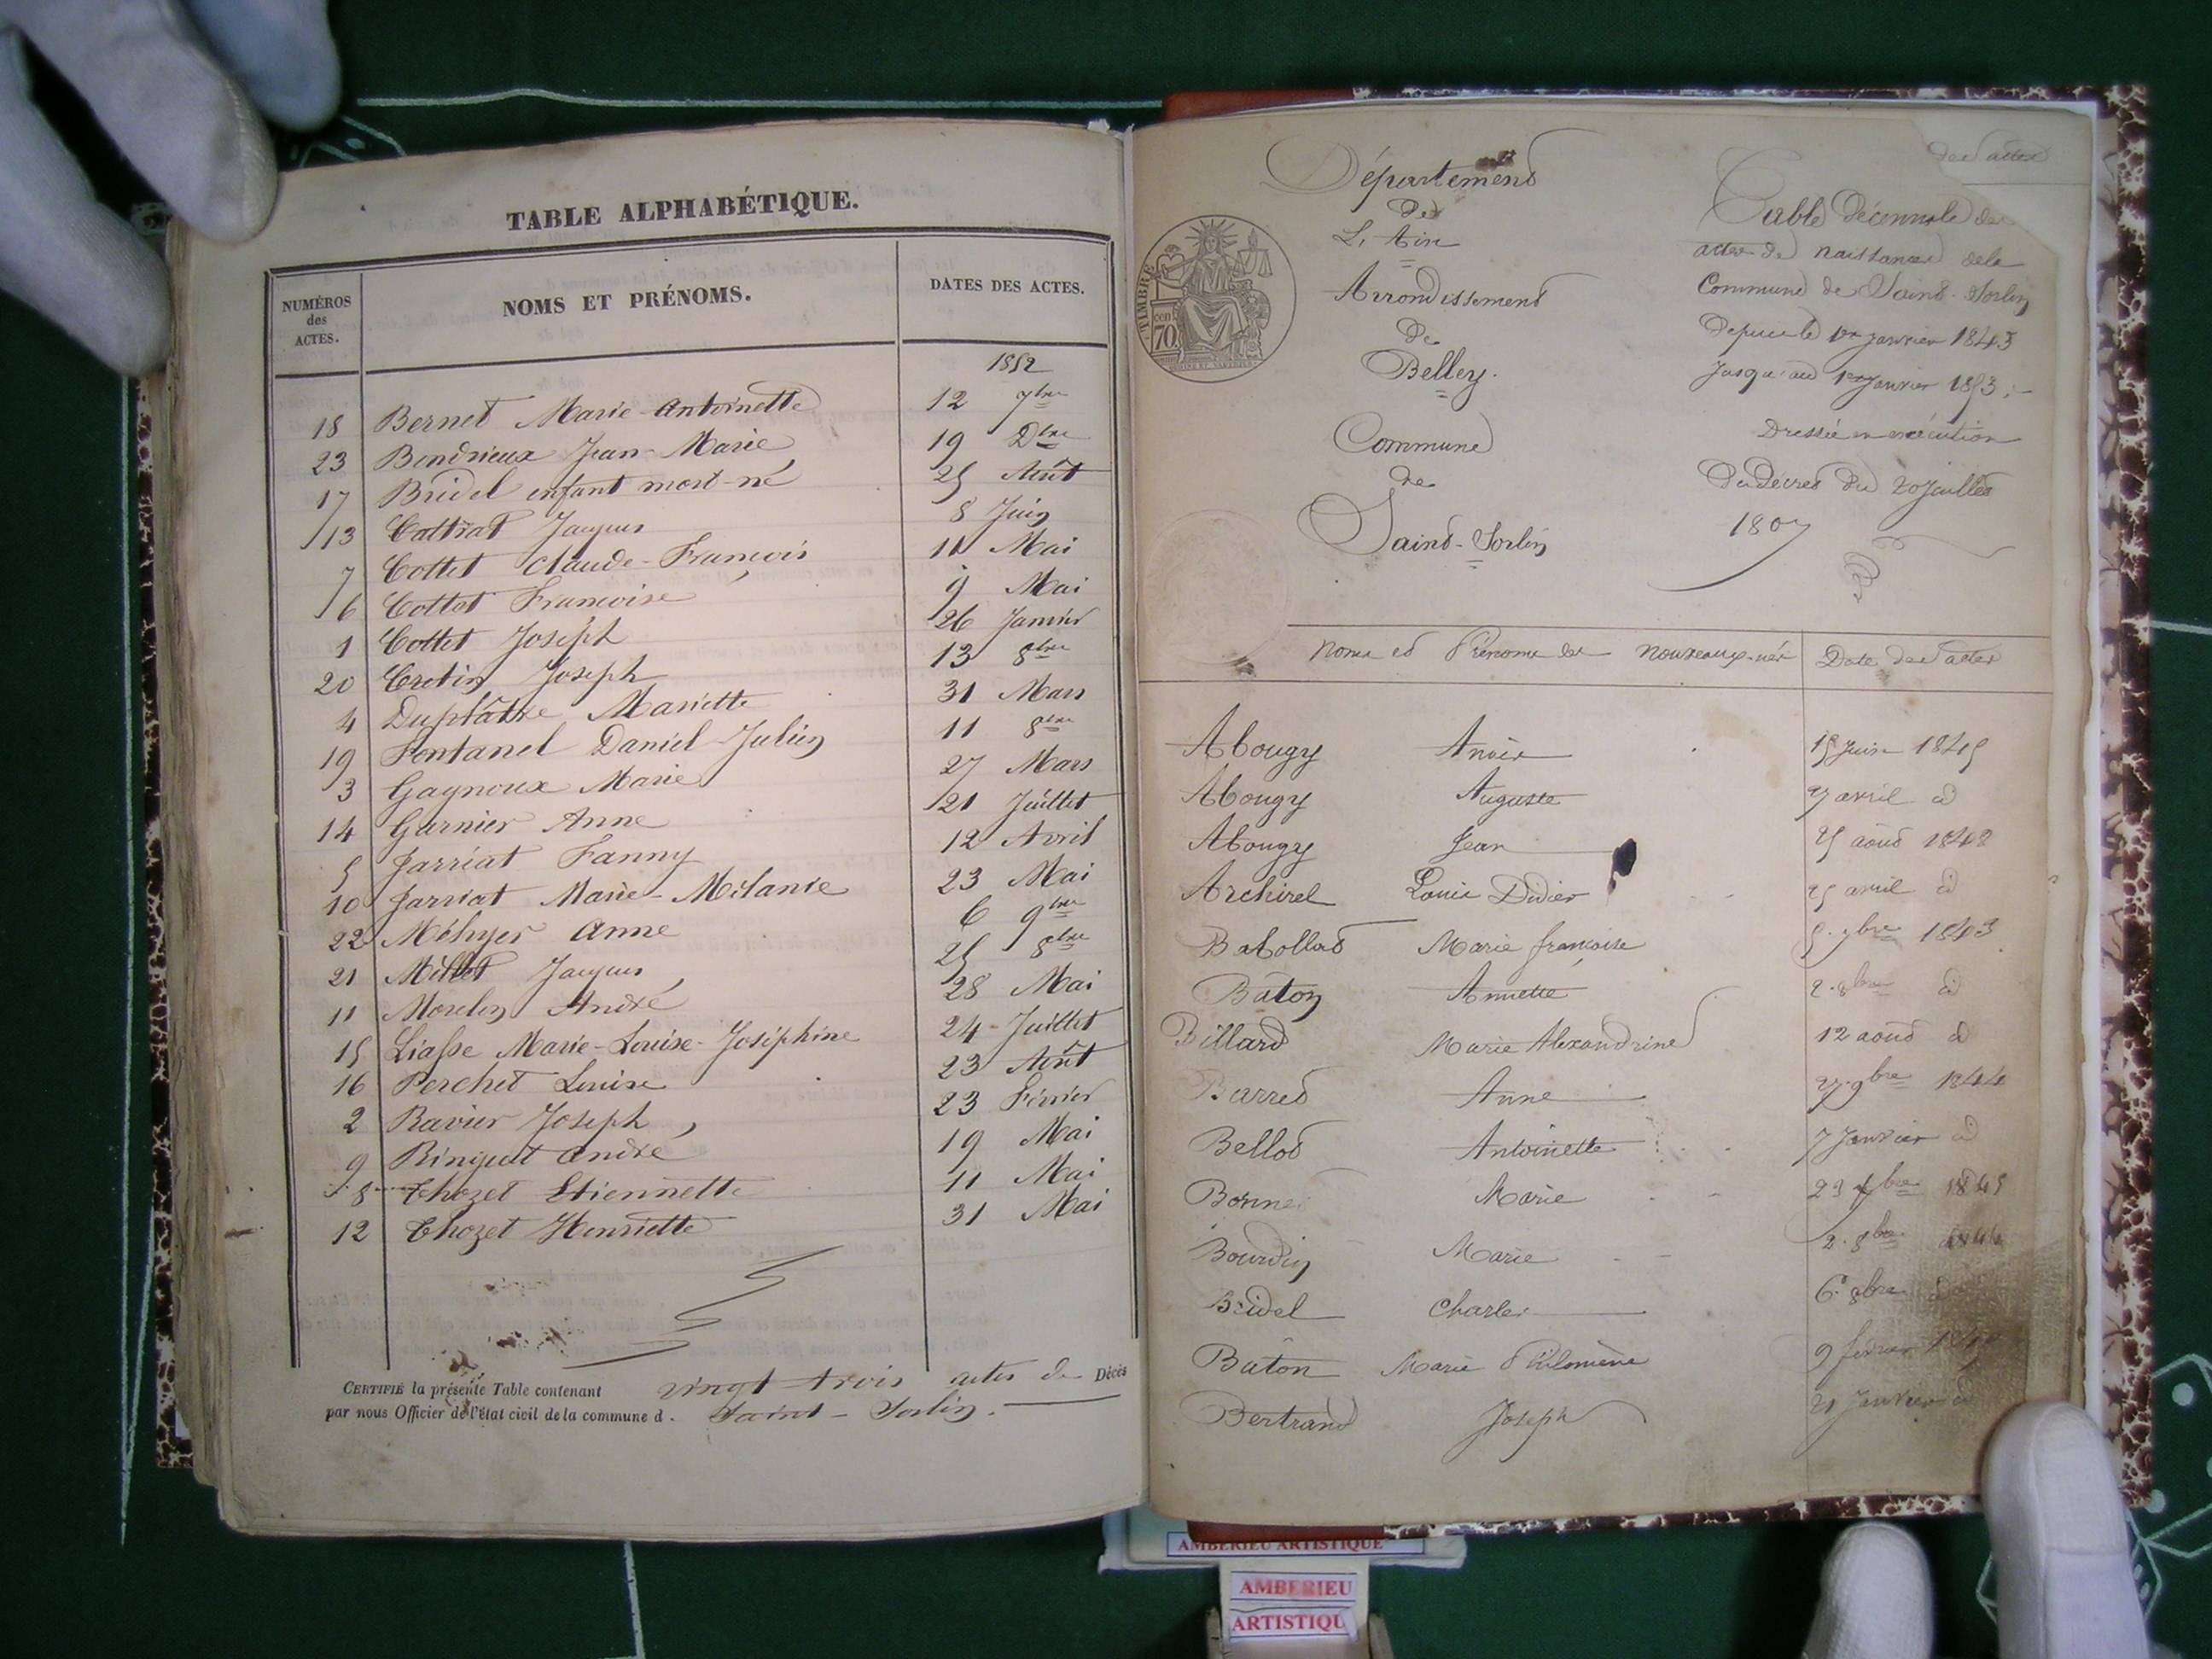 TABLE ALPHABÉTIQUE.
NUMÉROS des ACTES. NOMS ET PRÉNOMS. DATES DES ACTES.
1852
18 Bernet Marie-Antoinette 12 7bre
23 Bendrieux Jean-Marie 19 Dbre
17 Bridel enfant mort-né 25 Août
13 Cottrat Jacques 8 Juin
7 Cottet Claude-François 11 Mai
6 Cottet Françoise 9 Mai
1 Cottet Joseph 26 Janvier
20 Cretin Joseph 13 8bre
4 Duplâtre Mariette 31 Mars
19 Fontanel Daniel-Julien 11 8bre
3 Gagnoux Marie 27 Mars
14 Garnier Anne 21 Juillet
5 Jarriat Fanny 12 Avril
10 Jarriat Marie-Mélanie 23 Mai
22 Anne 6 9bre
21 Millet Jacques 25 8bre
11 Morelin André 28 Mai
15 Liasse Marie-Louise-Joséphine 24 Juillet
16 Perchet Louise 23 Août
2 Ravier Joseph 23 Février
9 Ringuet André 19 Mai
8 Thozet Etiennette 11 Mai
12 Thozet Henriette 31 Mai
CERTIFIÉ la présente Table contenant vingt trois actes de Décès
par nous Officier de l'état civil de la commune d. Saint-Sorlin.
Département
de
L'Ain
Arrondissement
de
Belley.
Commune
de
Saint-Sorlin
TIMBRE
70
des actes
Table décennale des
actes de naissances de la
Commune de Saint-Sorlin
depuis le 1er janvier 1843
jusqu'au 1er janvier 1853.
Dressée en exécution
du décret du 20 juillet
1807
Noms et Prénoms des nouveaux-nés Date des actes
Abougy Anaïs 15 juin 1845
Abougy Auguste 7 avril id
Abougy Jean 25 août 1848
Archirel Louis Didier 25 avril id
Babollat Marie françoise 5 7bre 1843
Bâton Annette 2 8bre id
Billard Marie Alexandrine 12 août id
Barret Anne 27 9bre 1844
Bellod Antoinette 7 Janvier id
Bonnet Marie 23 1845
Bourdin Marie 2 8bre 1844
Bridel Charles 6 8bre id
Bâton Marie Philomène 9 février
Bertrand Joseph 21 Janvier id
AMBERIEU ARTISTIQUE
AMBERIEU
ARTISTIQU